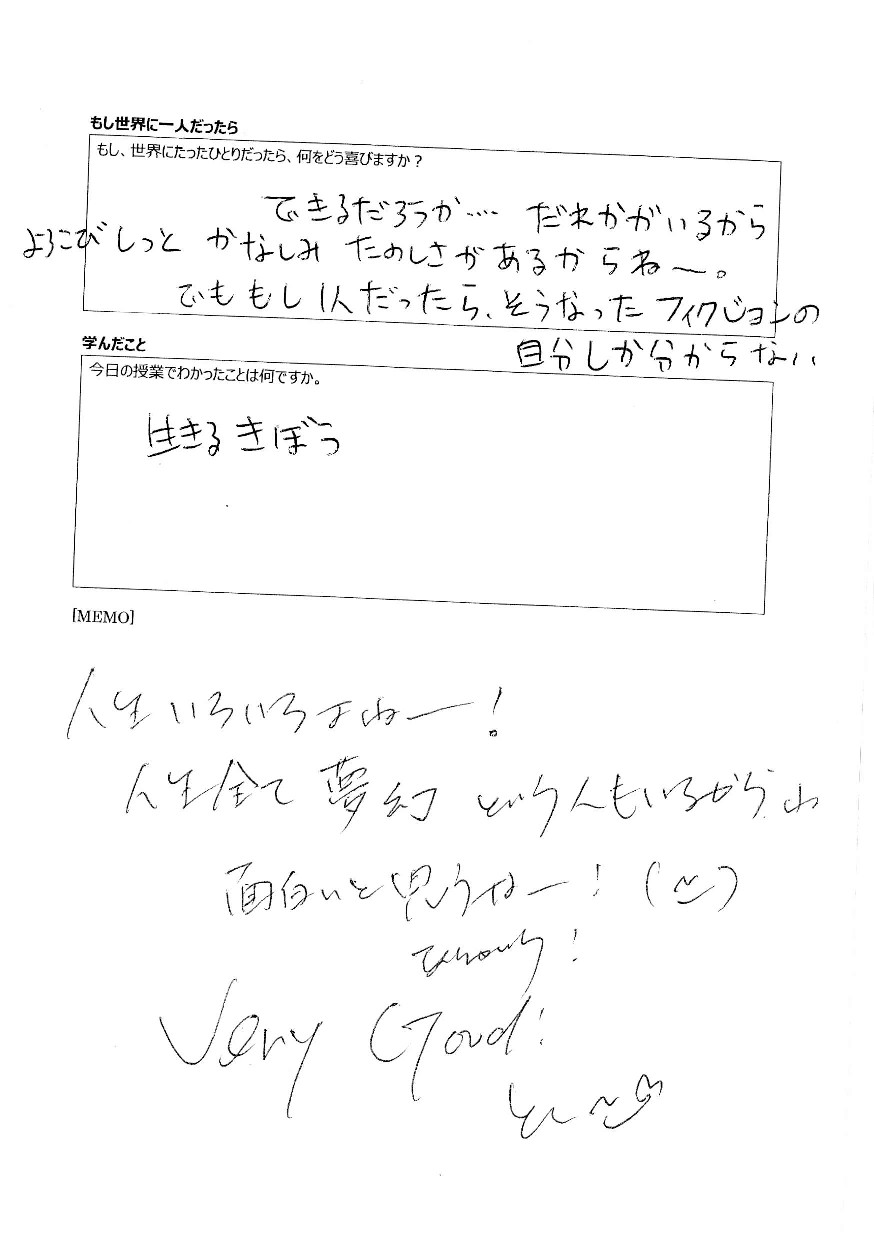 もし世界に一人だったら
もし、世界にたったひとりだったら、何をどう喜びますか？
できるだろうか‥‥ だれかがいるから
よろこび しっと かなしみ たのしさがあるからねー。
でも もし 1人だったら、そうなった フィクションの
自分しか分からない
学んだこと
今日の授業でわかったことは何ですか。
生きる きぼう
[MEMO]
人生いろいろよねー!
人生全て 夢幻 どういう人もいるからね
面白いと思うねー!
Very Good!